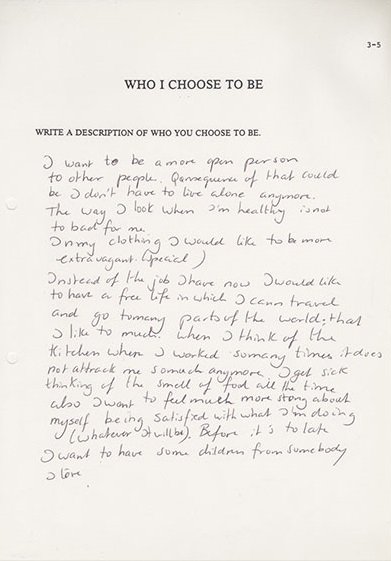 3-5
WHO I CHOOSE TO BE
WRITE A DESCRIPTION OF WHO YOU CHOOSE TO BE.
I want to be a more open person
to other people. Qonsequence of that could
be I don't have to live alone anymore.
The way I look when I'm healthy is not
to bad for me.
In my clothing I would like to be more
extravagant. (special)
Instead of the job I have now I would like
to have a free life in which I cann travel
and go to many parts of the world, that
I like to much. When I think of the
kitchen where I worked so many times it does
not attrack me so much anymore. I get sick
thinking of the smell of food all the time
also I want to feel much more stong about
myself being satisfied with what I'm doing
(whatever It will be). Before it's to late
I want to have some children from somebody
I love